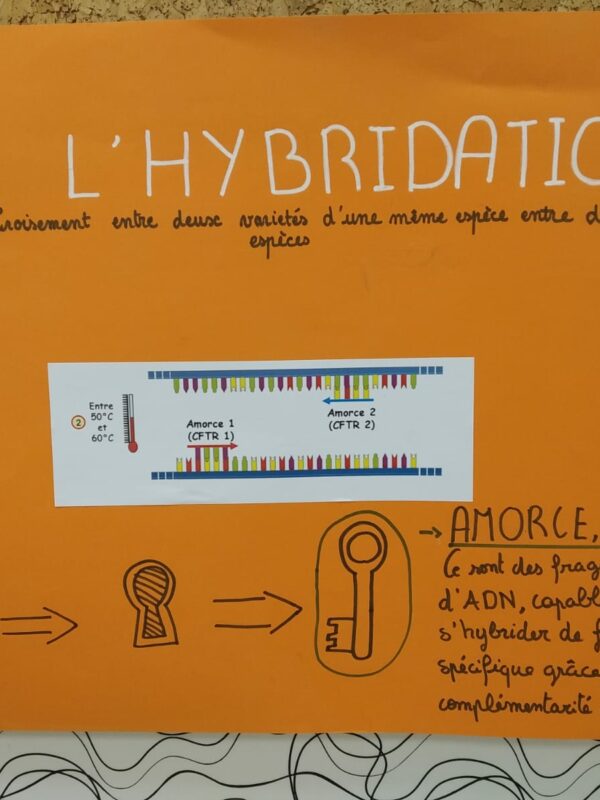 L'HYBRIDATIO
Croisement entre deusc varietés d'une même espèce entre d
espèces
2
Entre
50°C
et
60°C
Amorce 2
(CFTR 2)
Amorce 1
(CFTR 1)
→ AMORCE,
Ce sont des frag
d'ADN, capabl
s'hybrider de f
spécifique grâce
complémentarité